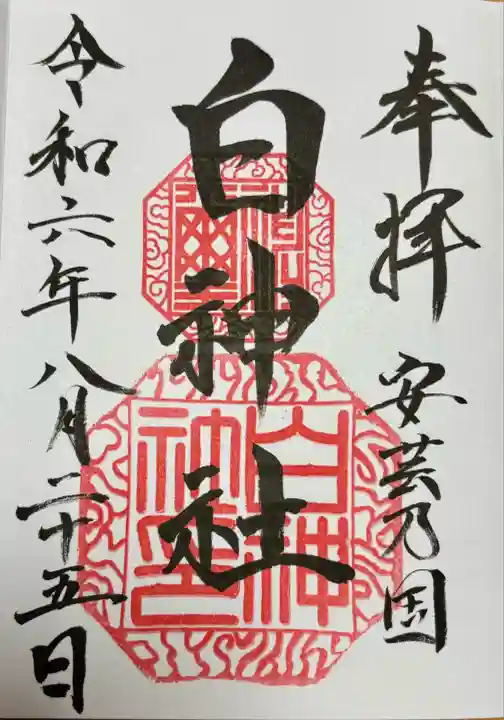 奉拝
安芸乃国
白神社
白神
社印
令和六年八月二十五日